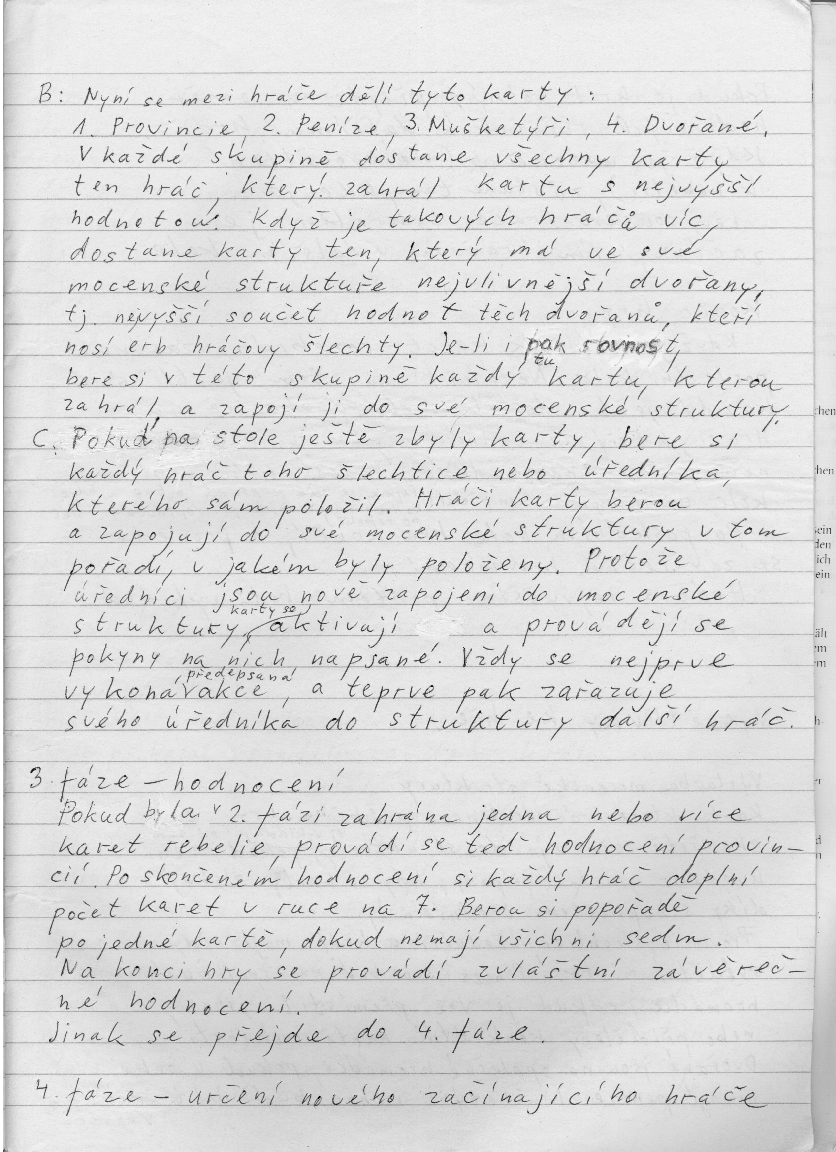 B: Nyní se mezi hráče dělí tyto karty:
1. Provincie, 2. Peníze, 3. Mušketýři, 4. Dvořané.
V každé skupině dostane všechny karty
ten hráč, který zahrál kartu s nejvyšší
hodnotou. Když je takových hráčů víc,
dostane karty ten, který má ve své
mocenské struktuře nejvlivnější dvořany,
tj. nejvyšší součet hodnot těch dvořanů, kteří
nosí erb hráčovy šlechty. Je-li i pak rovnost,
bere si v této skupině každý tu kartu, kterou
zahrál, a zapojí ji do své mocenské struktury.
C. Pokud na stole ještě zbyly karty, bere si
každý hráč toho šlechtice nebo úředníka,
kterého sám položil. Hráči karty berou
a zapojují do své mocenské struktury v tom
pořadí, v jakém byly položeny. Protože
úředníci jsou nově zapojeni do mocenské
struktury, karty se aktivají a provádějí se
pokyny na nich napsané. Vždy se nejprve
vykoná předepsaná akce, a teprve pak zařazuje
svého úředníka do struktury další hráč.
3. fáze – hodnocení
Pokud byla v 2. fázi zahrána jedna nebo více
karet rebelie, provádí se teď hodnocení provin-
cií. Po skončeném hodnocení si každý hráč doplní
počet karet v ruce na 7. Berou si popořadě
po jedné kartě, dokud nemají všichni sedm.
Na konci hry se provádí zvláštní závěreč-
né hodnocení.
Jinak se přejde do 4. fáze.
4. fáze – určení nového začínajícího hráče
chen
hen
sein
den
ich
ein
ält
em
em